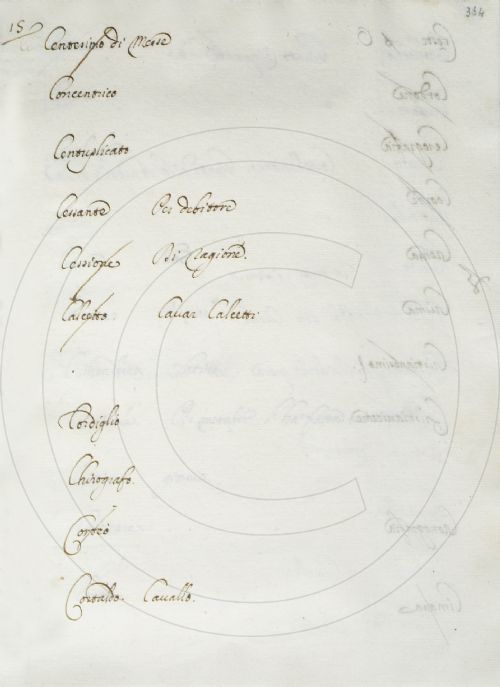 15
334
Centesimo di Messe
Concentrico
Centuplicato
Cessante Per debitore
Cessione Di Ragione.
Calcetto Cavar Calcetti
Cordiglio
Chirografo.
Cortaldo. Cavallo.